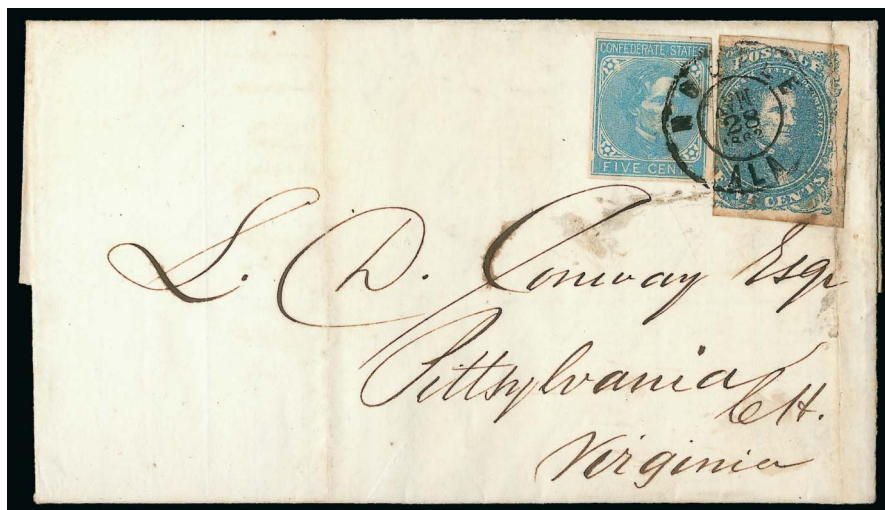 CONFEDERATE STATES
FIVE CEN
POSTAGE
CENTS
MOBILE
28
ALA
L. D. Conway Esqr
Pittsylvania
C.H.
Virginia